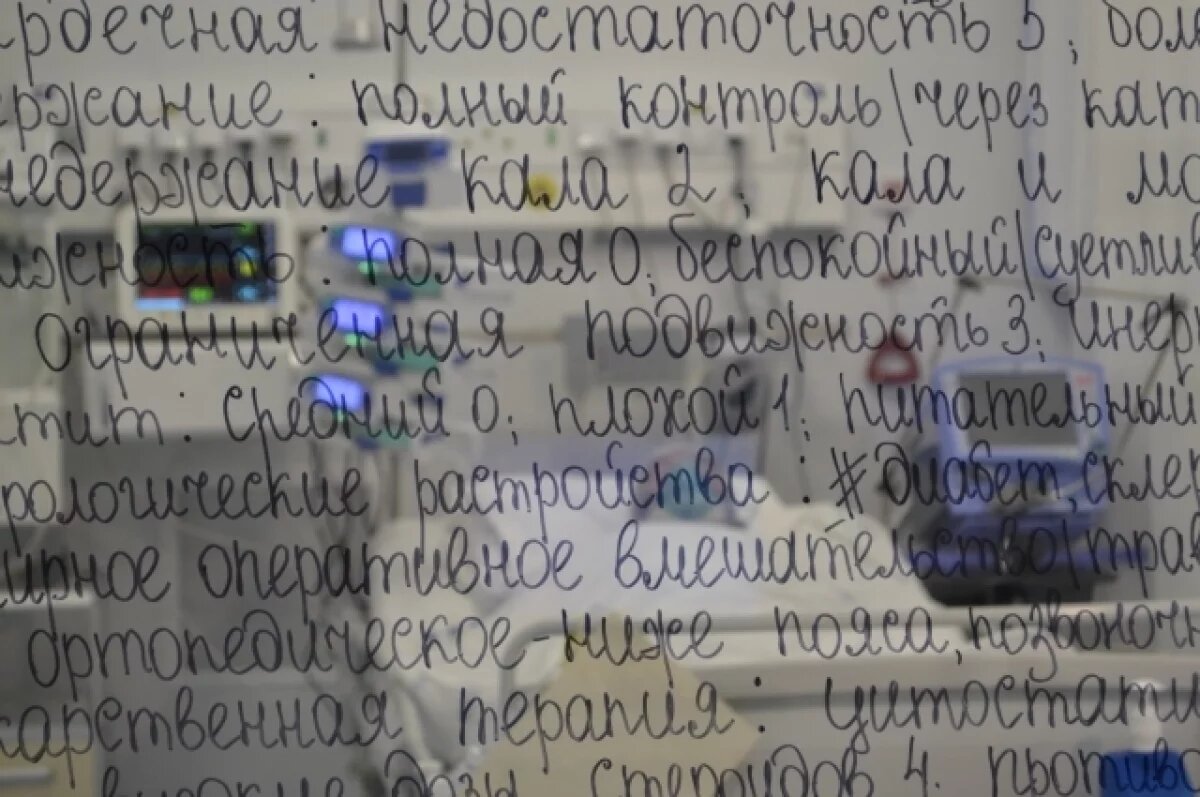 рдечная недостаточность 5; бол
ржание: полный контроль/через кат
недержание кала 2; кала и мо
ижность: полная 0; беспокойный/суетлив
ограниченная подвижность 3; инер
тит: средний 0; плохой 1; питательный
рологические растройства: #диабет, склер
ирное оперативное вмешательство/трав
ортопедическое-ниже пояса, позвоноч
карственная терапия: цитостати
высокие дозы стероидов 4. противо